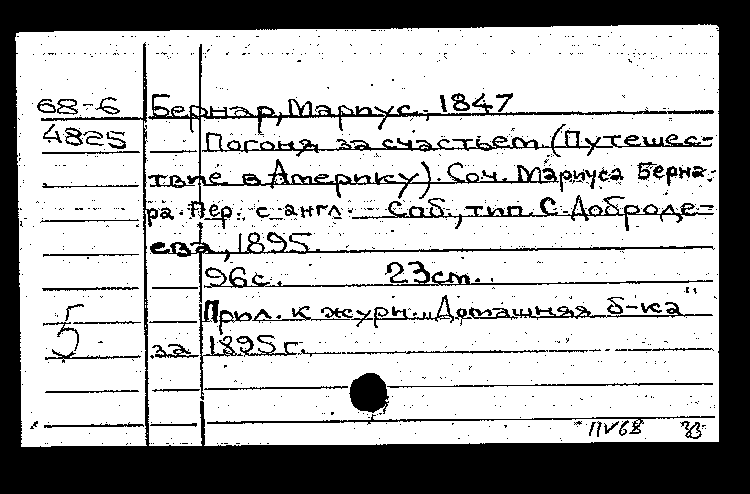 68-6 Бернар, Мариус, 1847
4825 Погоня за счастьем (Путешес-
твие в Америку). Соч. Мариуса Берна-
ра. Пер. с англ. - Спб., тип. С. Доброде-
ева, 1895.
96с. 23см.
Прил. к журн. „Домашняя б-ка"
5 за 1895г.
IIV68